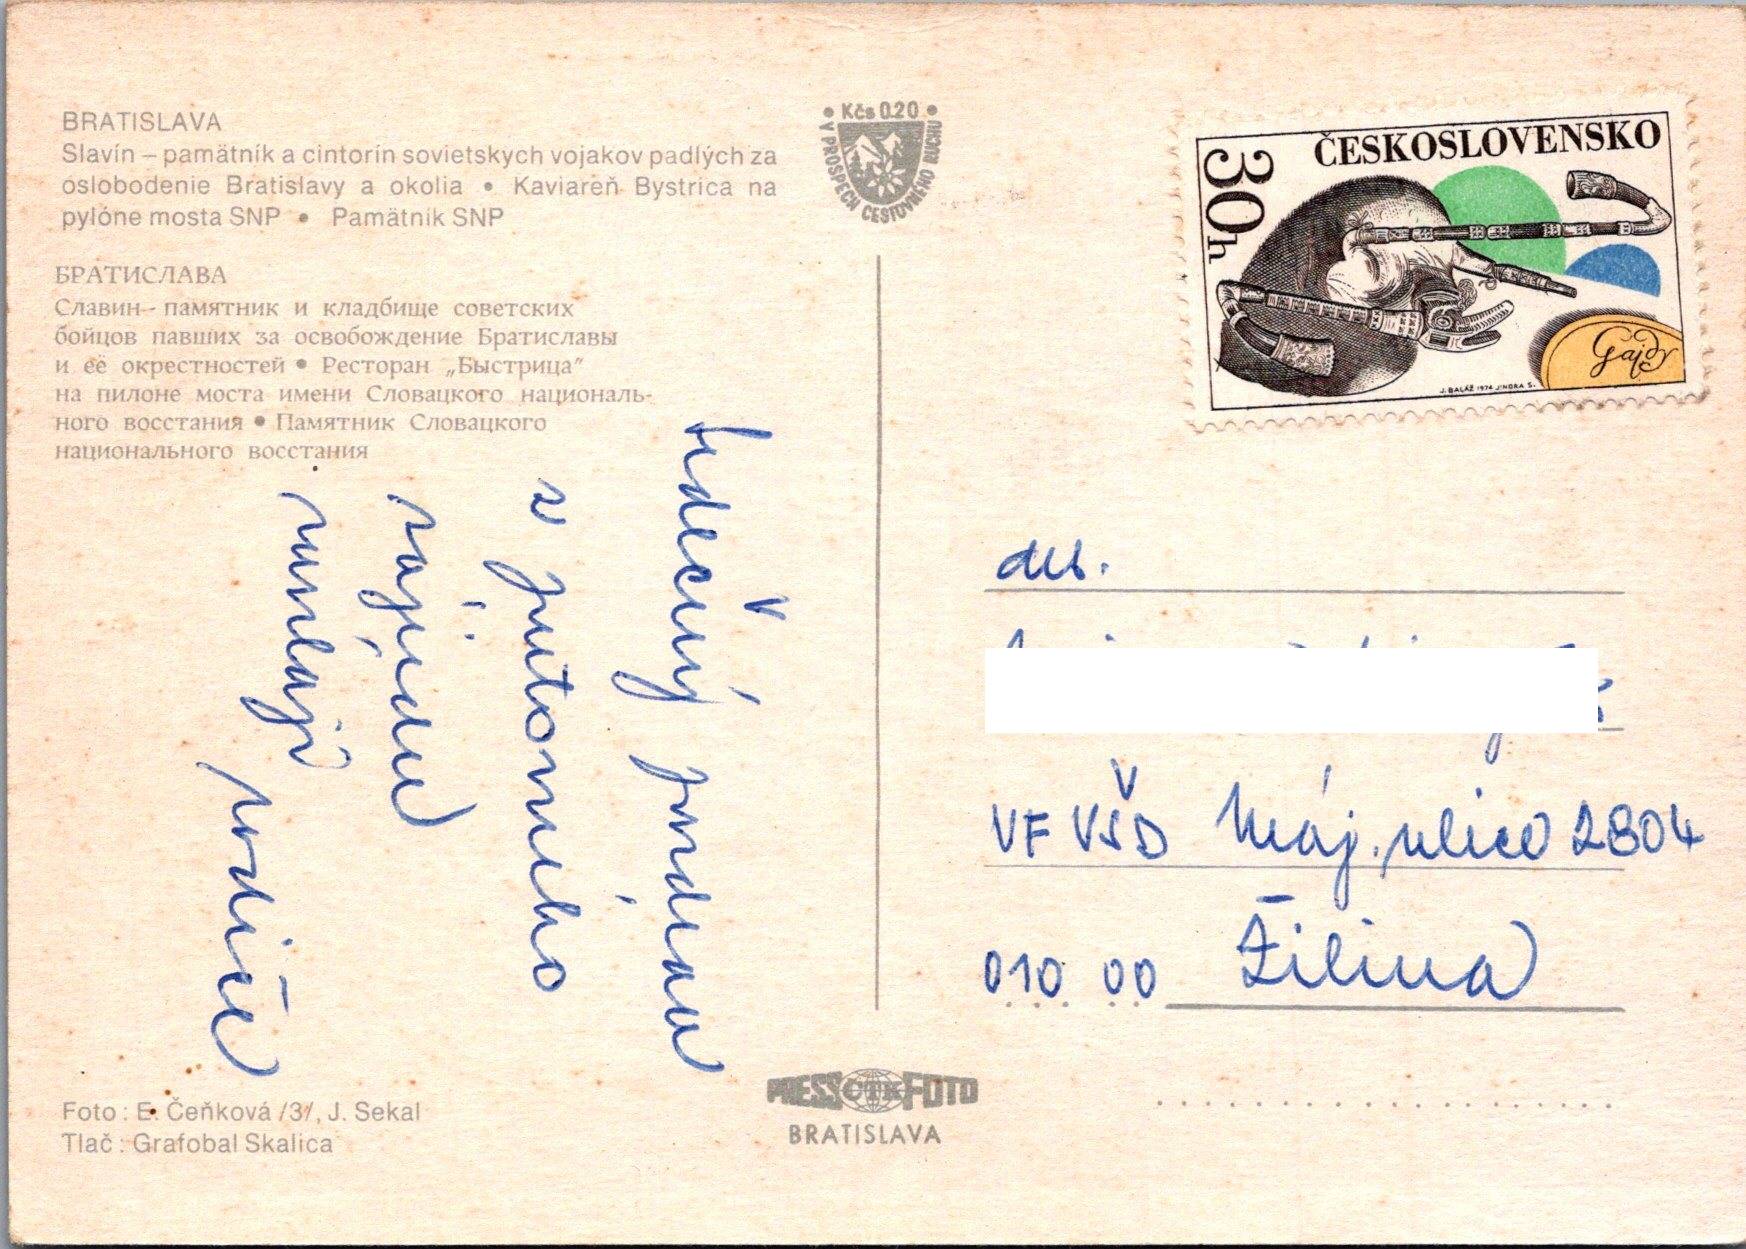 BRATISLAVA
Slavín – pamätník a cintorín sovietskych vojakov padlých za
oslobodenie Bratislavy a okolia • Kaviareň Bystrica na
pylóne mosta SNP • Pamätník SNP
БРАТИСЛАВА
Славин – памятник и кладбище советских
бойцов павших за освобождение Братиславы
и её окрестностей • Ресторан „Быстрица"
на пилоне моста имени Словацкого националь-
ного восстания • Памятник Словацкого
национального восстания
Srdečný pozdrav
z putovného
zájazdu
zasielajú
rodičia
Foto : E. Čeňková /3/, J. Sekal
Tlač : Grafobal Skalica
• Kčs 0.20 •
V PROSPECH CESTOVNÉHO RUCHU
PRESS ČTK FOTO
BRATISLAVA
ČESKOSLOVENSKO
30h
Gajdy
J. BALÁŽ 1974 JINDRA S.
VF VŠD Máj. ulica 2804
010 00 Žilina